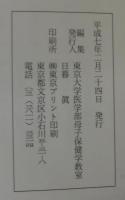 平成七年二月二十四日 発行
編集 東京大学医学部母子保健学教室
発行人 日暮 眞
印刷所 ㈱東京プリント印刷
東京都文京区小石川
電話